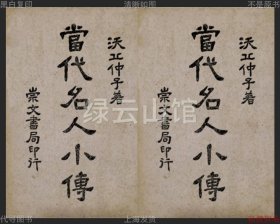 黑白复印
清晰如图
不是原书
沃丘仲子著
當代名人小傳
崇文書局印行
沃丘仲子著
當代名人小傳
崇文書局印行
绿云山馆
代寻图书
上海发货